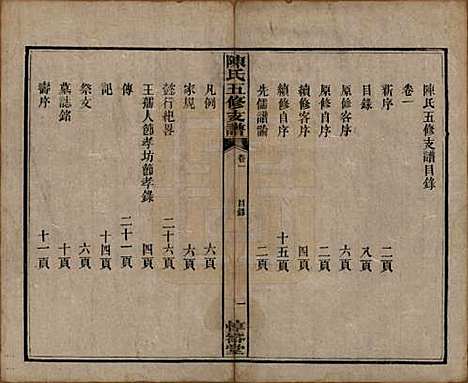 陳氏五修支譜目錄
卷一
新序 二頁
目錄 八頁
原修客序 六頁
原修自序 二頁
續修客序 四頁
續修自序 十五頁
先儒譜論 二頁
陳氏五修支譜 卷一 目錄 一 惇裕堂
凡例 六頁
家規 六頁
懿行紀畧 二十六頁
王孺人節孝坊節孝錄 四頁
傳 二十一頁
記 十四頁
祭文 六頁
墓誌銘 十頁
壽序 十一頁